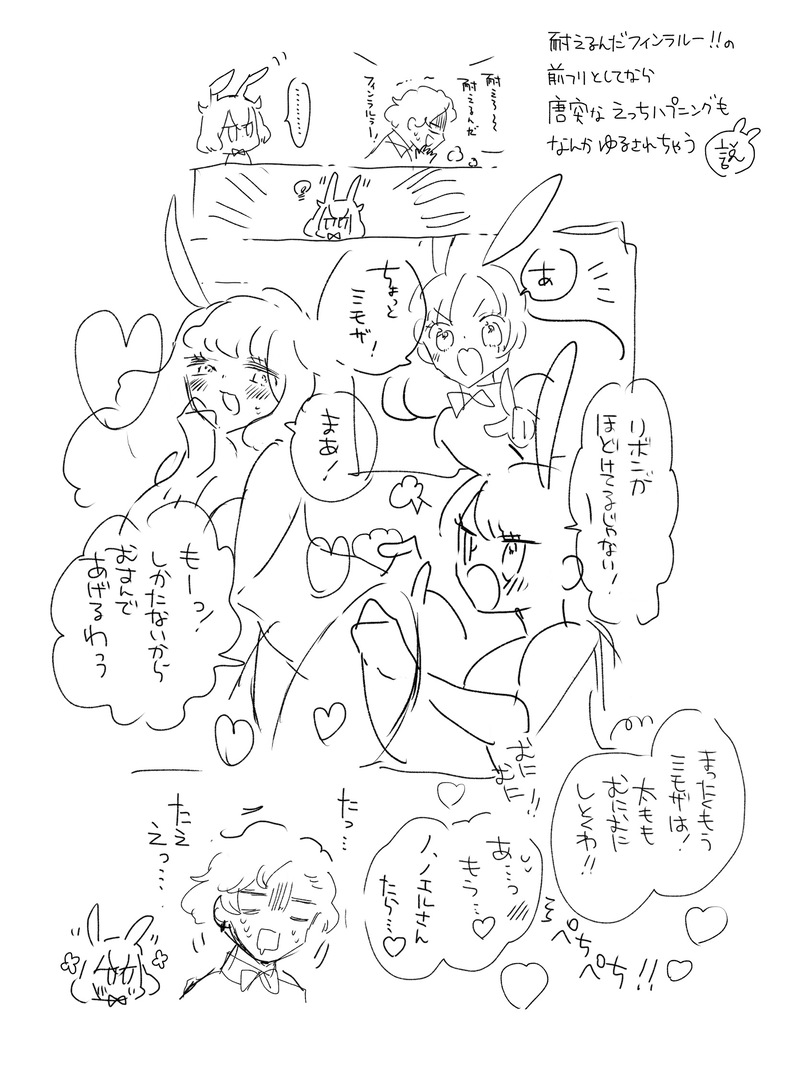 耐えるんだフィンラルー!!の
前フリとしてなら
唐突な えっちハプニングも
なんか ゆるされちゃう
説
耐えろ〜〜
耐えるんだ
フィンラルラー!
………
あ
ちょっと
ミモザ!
リボンが
ほどけてるじゃない!
まあ!
もーっ!
しかたないから
むすんで
あげるわっっ
まったくもう
ミモザは!
太もも
むにむに
しとくわ!!
むに
むに!!
あ…っ
もう…♡
ノ、ノエルさん
たら…♡
ぺち
ぺち!!
たっ…
たえ
えっ……